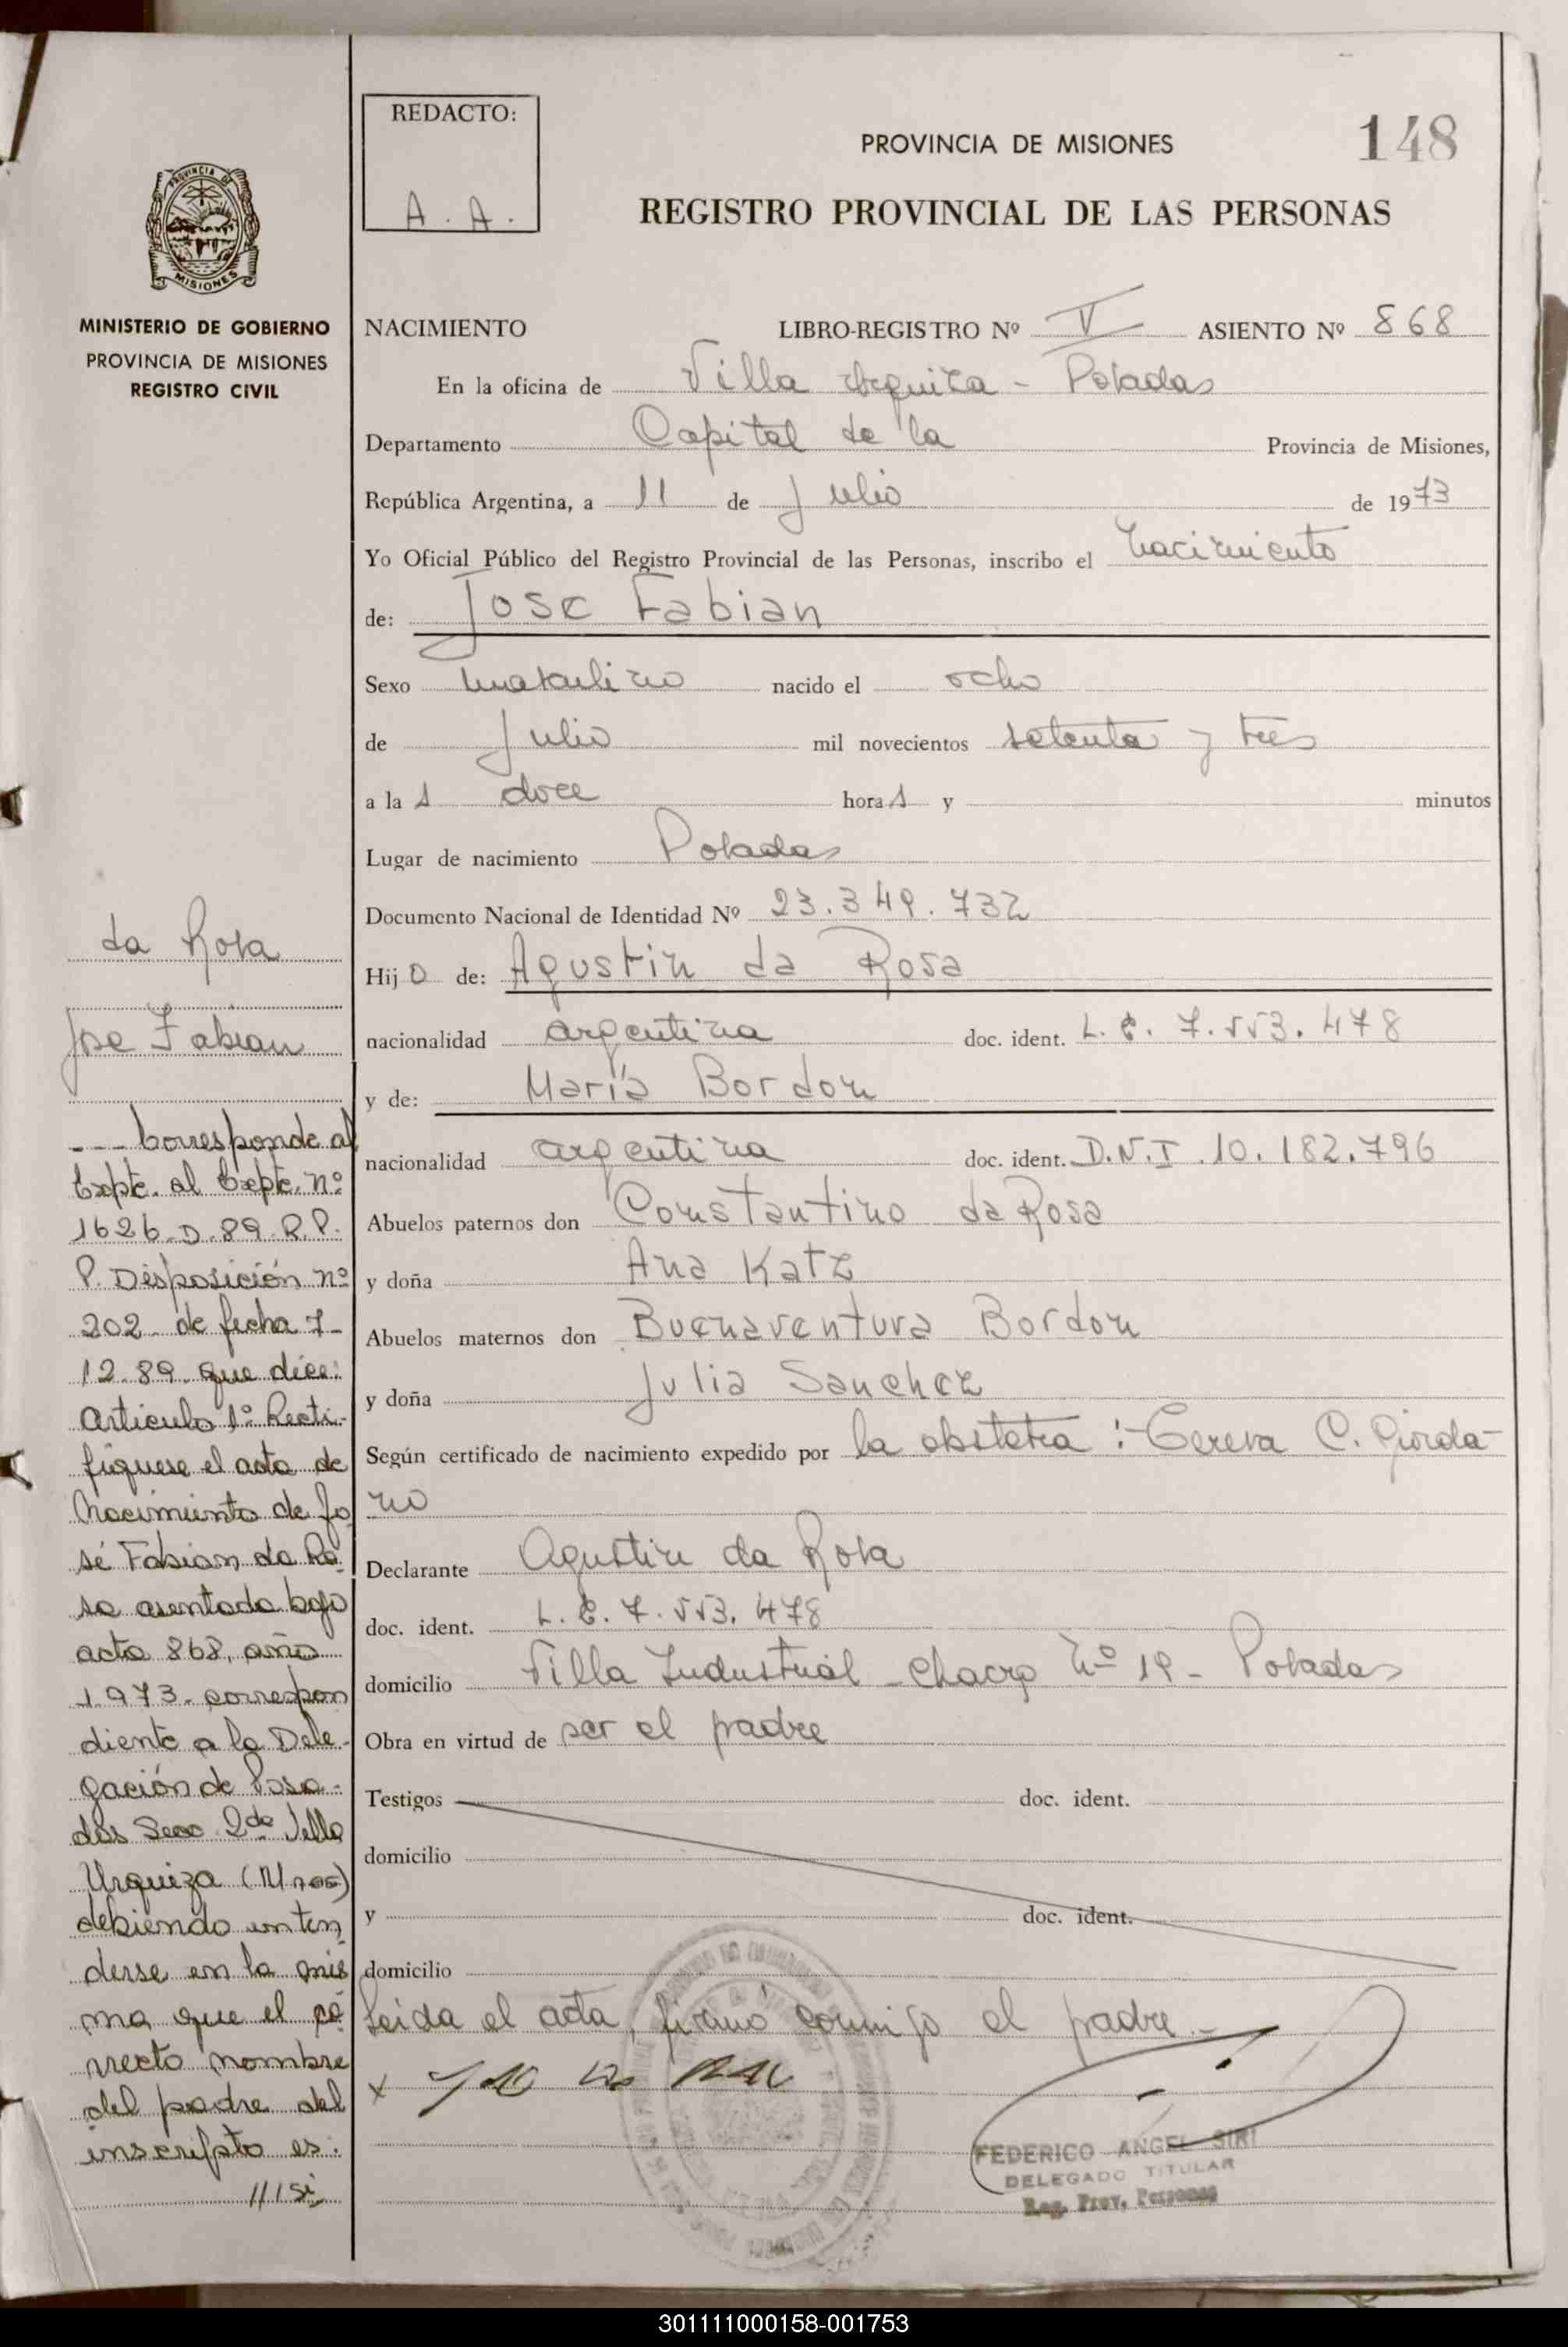 REDACTO:
A. A.
PROVINCIA DE MISIONES
148
REGISTRO PROVINCIAL DE LAS PERSONAS
PROVINCIA DE
MISIONES
MINISTERIO DE GOBIERNO
PROVINCIA DE MISIONES
REGISTRO CIVIL
NACIMIENTO LIBRO-REGISTRO Nº V ASIENTO Nº 868
En la oficina de Villa Urquiza - Posadas
Departamento Capital de la Provincia de Misiones,
República Argentina, a 11 de Julio de 1973
Yo Oficial Público del Registro Provincial de las Personas, inscribo el nacimiento
de: Jose Fabian
Sexo masculino nacido el ocho
de Julio mil novecientos setenta y tres
a la s doce hora s y minutos
Lugar de nacimiento Posadas
Documento Nacional de Identidad Nº 23.349.732
Hij o de: Agustin da Rosa
nacionalidad argentina doc. ident. L.E. 7.553.478
y de: María Bordon
nacionalidad argentina doc. ident. D.N.I. 10.182.796
Abuelos paternos don Constantino da Rosa
y doña Ana Katz
Abuelos maternos don Buenaventura Bordon
y doña Julia Sanchez
Según certificado de nacimiento expedido por la obstetra: C. Giorda-
no
Declarante Agustin da Rosa
doc. ident. L.E. 7.553.478
domicilio Villa Industrial - chacra Nº 19 - Posadas
Obra en virtud de ser el padre
Testigos doc. ident.
domicilio
y doc. ident.
domicilio
Leida el acta, firmó conmigo el padre.-
x
FEDERICO ANGEL SIRI
DELEGADO TITULAR
Reg. Prov. Personas
da Rosa
Jose Fabian
--- Corresponde al
Expte. al Expte. nº
1626-D-89-R.P.
P. Disposición nº
202 de fecha 7-
12-89 que dice:
Articulo 1º Recti-
fiquese el acta de
Nacimiento de Jo
sé Fabian da Ro-
sa asentada bajo
acta 868, año
1.973- correspon
diente a la Dele-
gación de Posa-
das Secc 2da Villa
Urquiza (M/nes)
debiendo enten
derse en la mis
ma que el co
rrecto nombre
del padre del
inscripto es:
///si
301111000158-001753